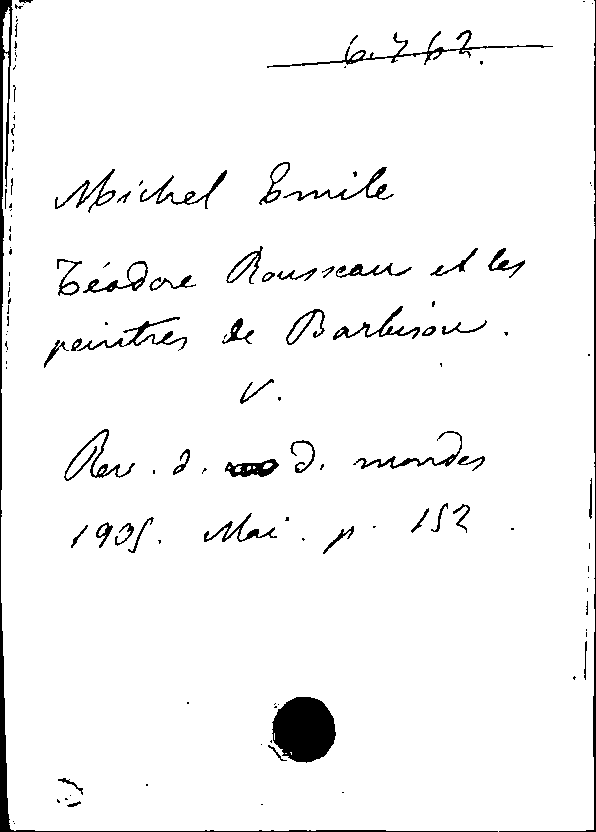 6.7.62.
Michel Emile
Téodore Rousseau et les
peintres de Barbison.
V.
Rev. d. d. mondes
1905. Mai. p. 152.